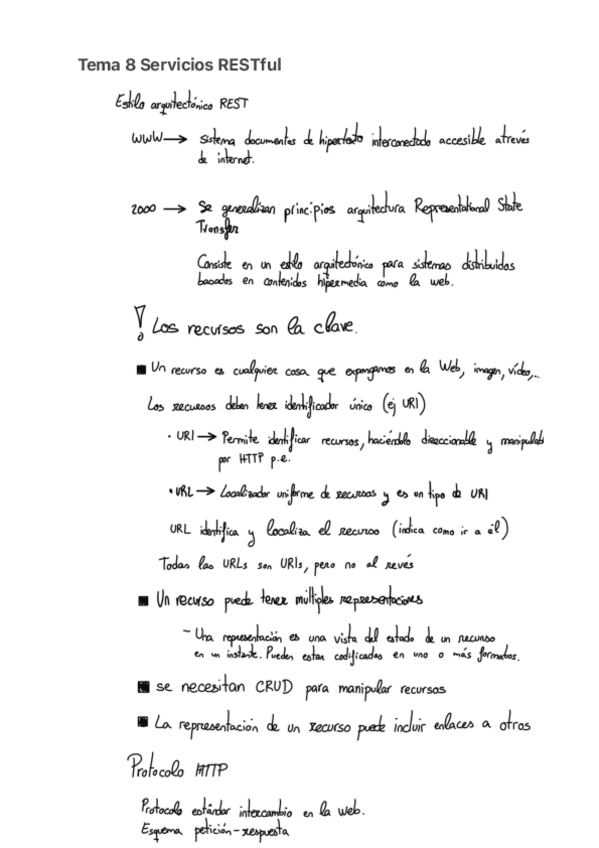 Tema 8 Servicios RESTful
Estilo arquitectónico REST
WWW → Sistema documentos de hipertexto interconectado accesible através
de internet.
2000 → Se generalizan principios arquitectura Representational State
Transfer
Consiste en un estilo arquitectónico para sistemas distribuidos
basados en contenidos hipermedia como la web.
! Los recursos son la clave.
■ Un recurso es cualquier cosa que expongamos en la Web, imagen, vídeo,...
Los recursos deben tener identificador único (ej URI)
· URI → Permite identificar recursos, haciéndolo direccionable y manipulab
por HTTP p.e.
· URL → Localizador uniforme de recursos y es un tipo de URI
URL identifica y localiza el recurso (indica como ir a él)
Todas las URLs son URIs, pero no al revés
■ Un recurso puede tener múltiples representaciones
- Una representación es una vista del estado de un recurso
en un instante. Pueden estar codificadas en uno o más formatos.
■ se necesitan CRUD para manipular recursos
■ La representación de un recurso puede incluir enlaces a otros
Protocolo HTTP
Protocolo estándar intercambio en la web.
Esquema petición-respuesta